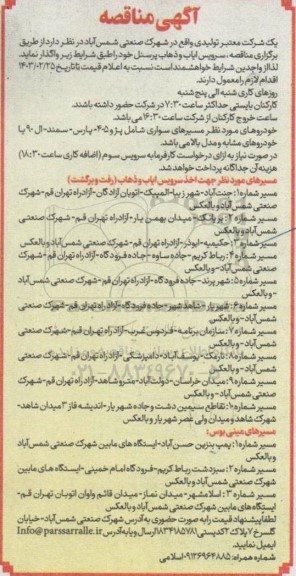 آگهی مناقصه
یک شرکت معتبر تولیدی واقع در شهرک صنعتی شمس‌آباد در نظر دارد از طریق
برگزاری مناقصه، سرویس ایاب وذهاب پرسنل خود راطبق شرایط زیر واگذار نماید.
لذا از واجدین شرایط خواهشمند است نسبت به اعلام قیمت تا تاریخ ۱۴۰۳/۰۲/۲۵
اقدام لازم را معمول دارند.
روزهای کاری شنبه الی پنج شنبه
کارکنان بایستی حداکثر ساعت ۷:۳۰ در شرکت حضور داشته باشند.
ساعت خروج کارکنان از شرکت ساعت ۱۶:۳۰ می باشد.
خودروهای مورد نظر مسیرهای سواری شامل پژو ۴۰۵-پارس-سمند-ال ۹۰ یا
خودروهای مشابه و مدل بالا می باشد.
در صورت نیاز به ازای درخواست کارفرما به سرویس سوم (اضافه کاری ساعت ۱۸:۳۰)
هزینه آن جداگانه پرداخت خواهد شد.
مسیرهای مورد نظر جهت اخذ سرویس ایاب و ذهاب (رفت و برگشت)
مسیر شماره ۱: جنت‌آباد-شهر زیبا-المپیک-اتوبان آزادگان-آزادراه تهران قم-شهرک
صنعتی شمس‌آباد و بالعکس
مسیر شماره ۲: پونک- میدان بهمن یار-آزادراه تهران قم- شهرک صنعتی
شمس‌آباد و بالعکس
مسیر شماره ۳: حکیمیه-ابوذر-آزادراه تهران قم-شهرک صنعتی شمس‌آباد و بالعکس
مسیر شماره ۴: رباط کریم-جاده ساوه-جاده فرودگاه-آزادراه تهران قم-شهرک
صنعتی شمس‌آباد-و بالعکس
مسیر شماره ۵: شهر پرند-جاده فرودگاه-آزادراه تهران قم-شهرک صنعتی شمس‌آباد
-و بالعکس
مسیر شماره ۶: شهریار-شاهد شهر-جاده فرودگاه-آزادراه تهران قم-شهرک صنعتی
شمس‌آباد-و بالعکس
مسیر شماره ۷: سازمان برنامه-فردوس غرب-آزادراه تهران قم-شهرک صنعتی
شمس‌آباد- و بالعکس
مسیر شماره ۸: نارمک-یوسف‌آباد-دامپزشکی-آزادراه تهران قم-شهرک صنعتی
شمس‌آباد-و بالعکس
مسیر شماره ۹: میدان خراسان-دولت‌آباد-مترو شاهد-آزادراه تهران قم-شهرک
صنعتی شمس‌آباد- و بالعکس
مسیر شماره ۱۰: تقاطع سیمین دشت و جاده شهریار-اندیشه فاز ۳ میدان شاهد-
شهرک شاهد و میدان ولی عصر شهریار و بالعکس
مسیرهای مینی بوس:
مسیر شماره ۱: پمپ بنزین حسن‌آباد-ایستگاه های مابین شهرک صنعتی شمس‌آباد
و بالعکس
مسیر شماره ۲: سبزدشت رباط کریم-فرودگاه امام خمینی-ایستگاه های مابین
شهرک صنعتی شمس‌آباد و بالعکس
مسیر شماره ۳: اسلامشهر-میدان نماز-میدان قائم واوان اتوبان تهران قم-
ایستگاه‌های مابین شهرک صنعتی شمس‌آباد و بالعکس
لطفا پیشنهاد قیمت را به صورت حضوری به آدرس شهرک صنعتی شمس‌آباد-خیابان
گلسرخ ۷ پلاک ۲ کدپستی ۱۸۳۴۱۸۵۷۸۱ ارسال و یا به آدرس Info@parssarralle.ir
ایمیل نمایید.
شماره همراه: ۰۹۱۳۶۹۶۴۸۸۵-اسلامی
۰۲۱-۸۸۳۴۹۶۷۰